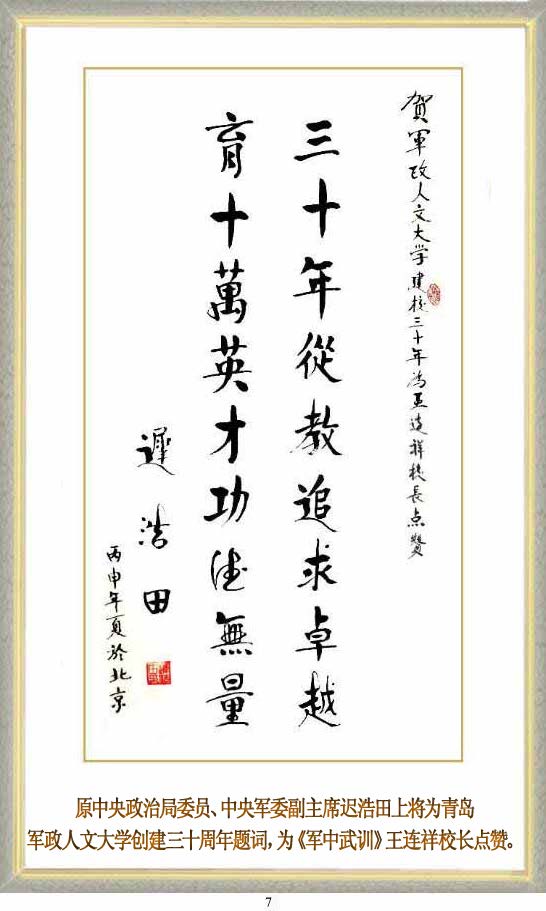 賀軍政人文大学建校三十年為王連祥校長点贊
三十年從教追求卓越
育十萬英才功德無量
遲浩田
丙申年夏於北京
原中央政治局委员、中央军委副主席迟浩田上将为青岛
军政人文大学创建三十周年题词，为《军中武训》王连祥校长点赞。
7